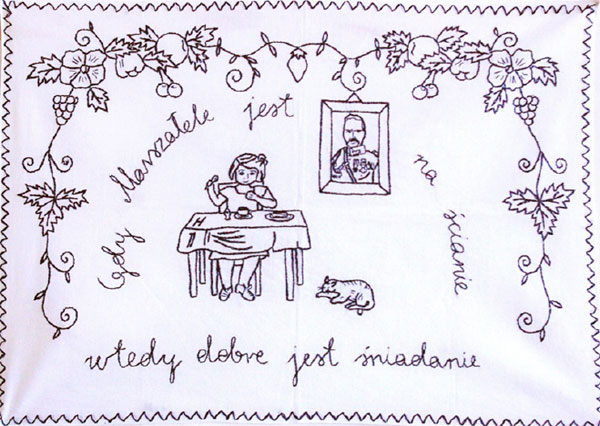 Gdy Marszałek jest
na ścianie
wtedy dobre jest śniadanie